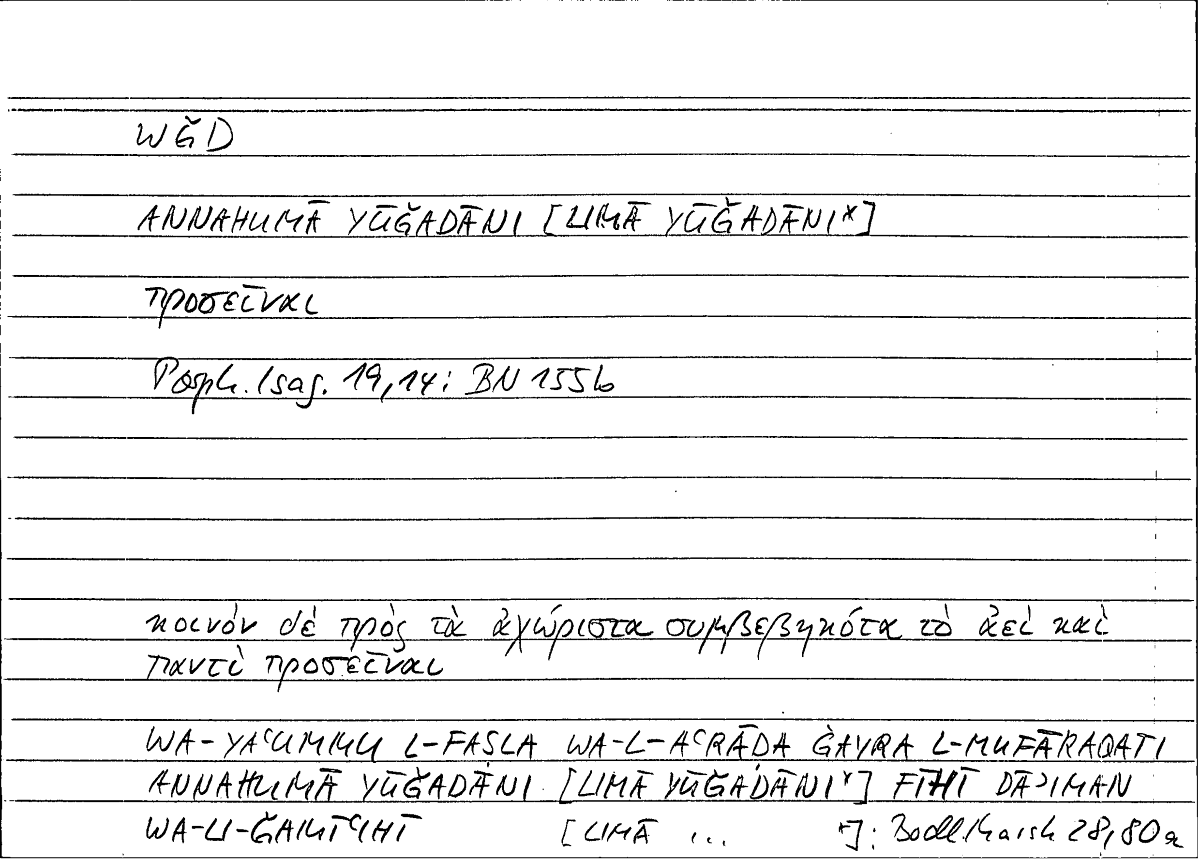 WǦD
ANNAHUMĀ YŪǦADĀNI [LIMĀ YŪǦADĀNI*]
προσεῖναι
Porph. Isag. 19,14: BN 155b
κοινὸν δὲ πρὸς τὰ ἀχώριστα συμβεβηκότα τὸ ἀεὶ καὶ
παντὶ προσεῖναι
WA-YAʿUMMU L-FAṢLA WA-L-AʿRĀḌA ĠAYRA L-MUFĀRAQATI
ANNAHUMĀ YŪǦADĀNI [LIMĀ YŪǦADĀNI*] FĪHĪ DĀʾIMAN
WA-LI-ǦAMĪʿIHĪ [LIMĀ ... *]: Bodl. Marsh 28,80a